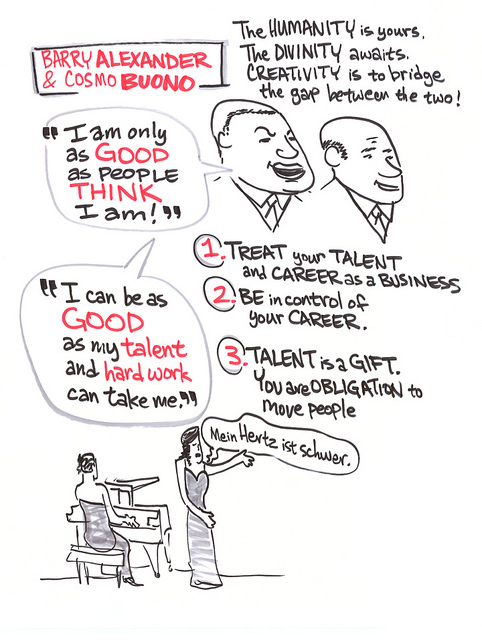 BARRY ALEXANDER
& COSMO BUONO
The HUMANITY is yours.
The DIVINITY awaits.
CREATIVITY is to bridge
the gap between the two!
"I am only
as GOOD
as PEOPLE
THINK
I am!"
"I can be as
GOOD
as my talent
and hard work
can take me."
1. TREAT your TALENT
and CAREER as a BUSINESS
2. BE in control of
your CAREER.
3. TALENT is a GIFT.
You are OBLIGATION to
move people
Mein Hertz ist schwer.